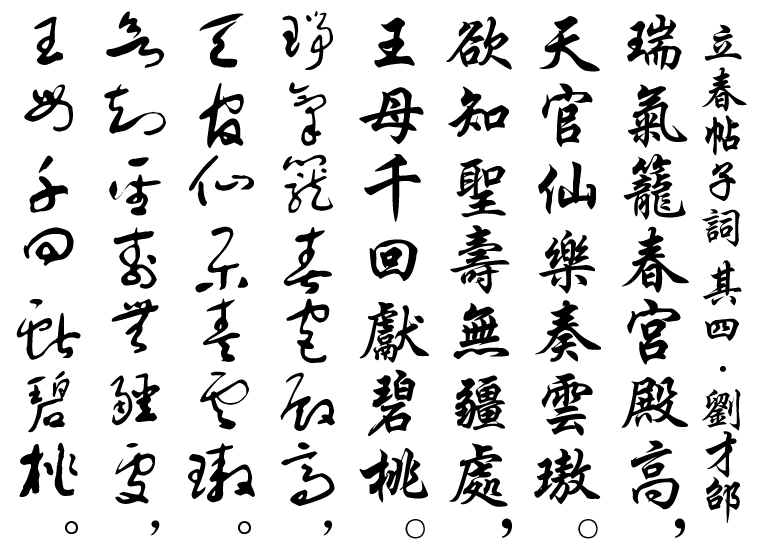 立春帖子詞 其四・劉才邵
瑞氣籠春宮殿高，
天官仙樂奏雲璈。
欲知聖壽無疆處，
王母千回獻碧桃。
瑞氣籠春宮殿高，
天官仙樂奏雲璈。
欲知聖壽無疆處，
王母千回獻碧桃。